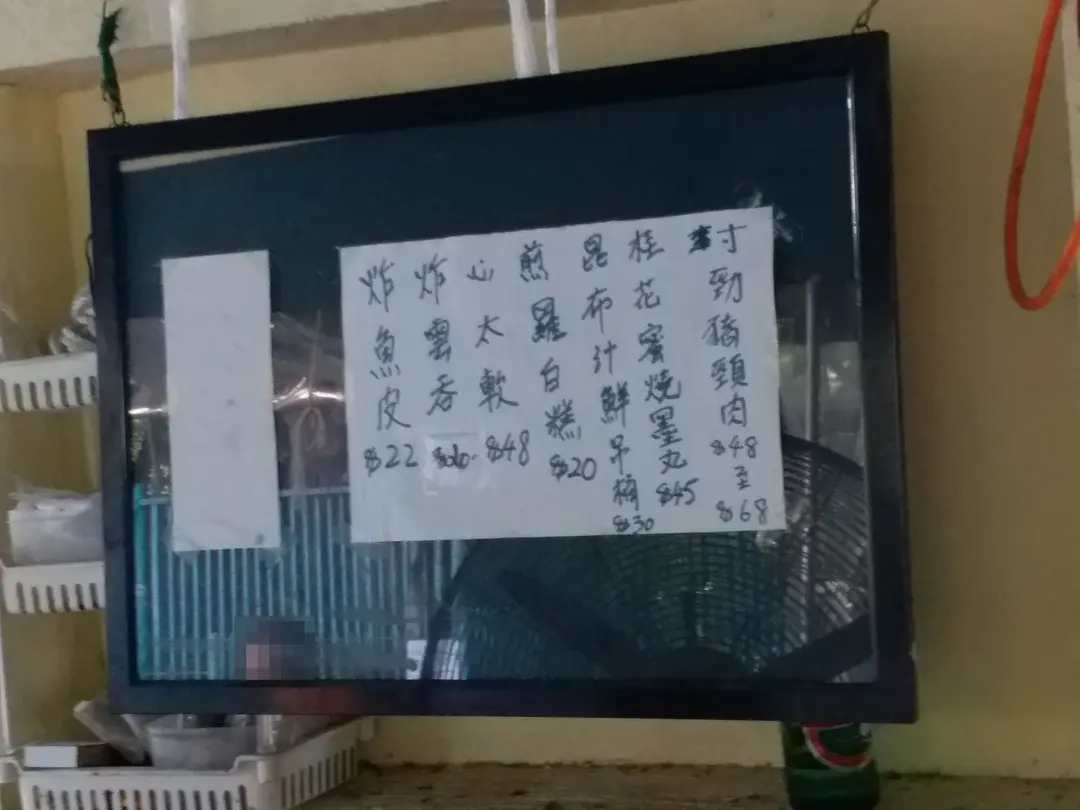 寸勁豬頸肉$48至$68
桂花蜜燒墨丸$45
昆布汁鮮吊桶$30
煎羅白糕$20
心太軟$48
炸雲吞
炸魚皮$22